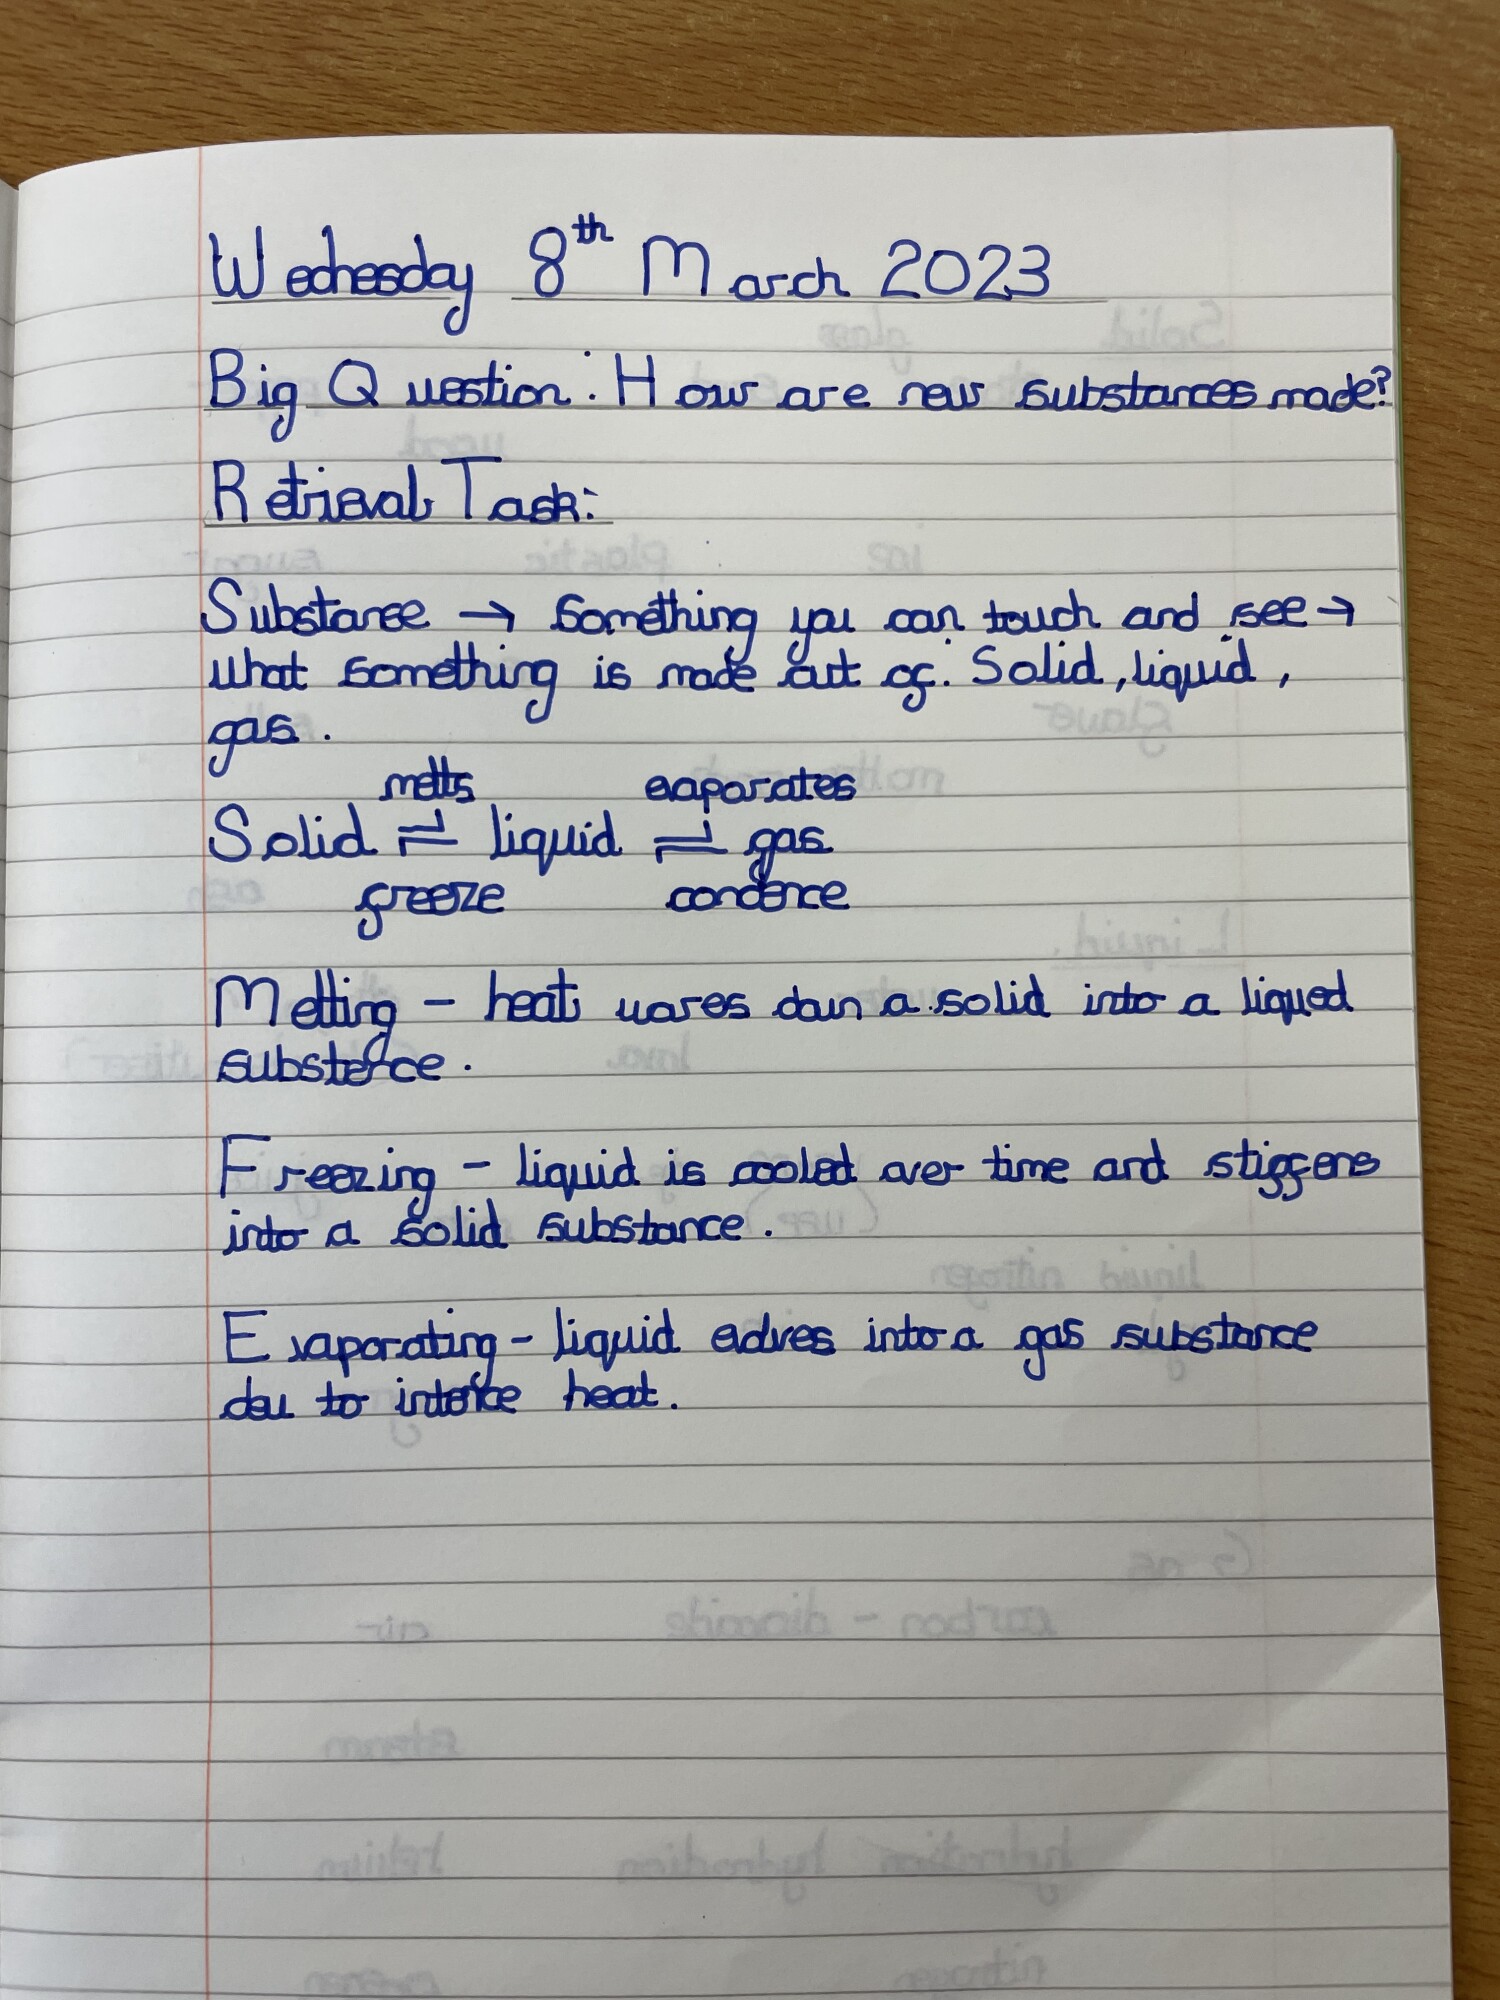 Wednesday 8th March 2023
Big Question: How are new substances made?
Retrieval Task:
Substance → Something you can touch and see →
what something is made out of. Solid, liquid,
gas.
melts evaporates
Solid ⇌ liquid ⇌ gas
freeze condence
Melting - heat wares down a solid into a liqued
substence.
Freezing - liquid is cooled over time and stiffens
into a solid substance.
Evaporating - liquid edves into a gas substance
deu to heat.